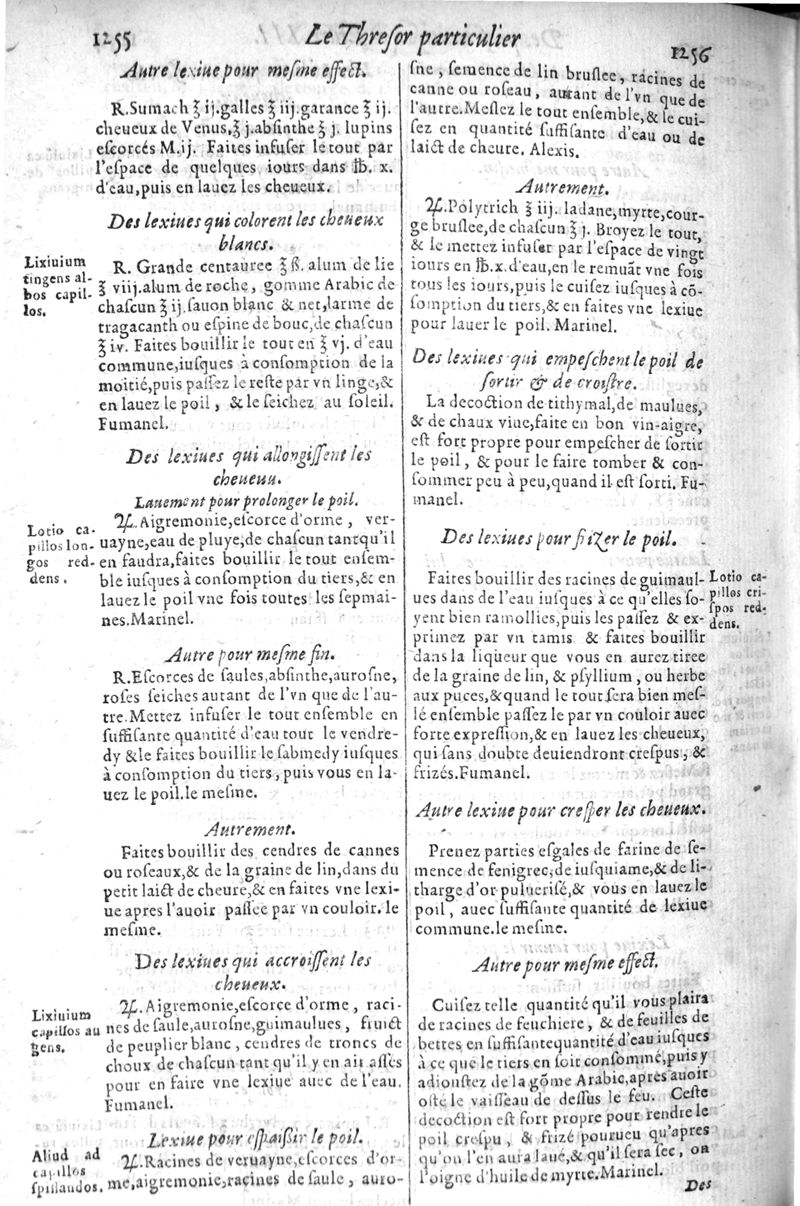 1255
Le Threſor particulier
1256
Autre lexiue pour meſme effect.
R. Sumach ʒ ij. galles ʒ iij. garance ʒ ij.
cheueux de Venus, ʒ j. abſinthe ʒ j. lupins
eſcorcés M. ij. Faites infuſer le tout par
l'eſpace de quelques iours dans ℔. x.
d'eau, puis en lauez les cheueux.
Des lexiues qui colorent les cheueux
blancs.
Lixiuium
tingens al-
bos capil-
los.
R. Grande centauree ʒ ß. alum de lie
ʒ viij. alum de roche, gomme Arabic de
chaſcun ʒ ij. ſauon blanc & net, larme de
tragacanth ou eſpine de bouc, de chaſcun
ʒ iv. Faites bouillir le tout en ʒ vj. d'eau
commune, iuſques à conſomption de la
moitié, puis paſſez le reſte par vn linge, &
en lauez le poil, & le ſeichez au ſoleil.
Fumanel.
Des lexiues qui allongiſſent les
cheueuu.
Lauement pour prolonger le poil.
Lotio ca-
pillos lon-
gos red-
dens.
♃. Aigremonie, eſcorce d'orme, ver-
uayne, eau de pluye, de chaſcun tant qu'il
en faudra, faites bouillir le tout enſem-
ble iuſques à conſomption du tiers, & en
lauez le poil vne fois toutes les ſepmai-
nes. Marinel.
Autre pour meſme fin.
R. Eſcorces de ſaules, abſinthe, auroſne,
roſes ſeiches autant de l'vn que de l'au-
tre. Mettez infuſer le tout enſemble en
ſuffiſante quantité d'eau tout le vendre-
dy & le faites bouillir le ſabmedy iuſques
à conſomption du tiers, puis vous en la-
uez le poil. le meſme.
Autrement.
Faites bouillir des cendres de cannes
ou roſeaux, & de la graine de lin, dans du
petit laict de cheure, & en faites vne lexi-
ue apres l'auoir paſſee par vn couloir. le
meſme.
Des lexiues qui accroiſſent les
cheueux.
Lixiuium
capillos au
gens.
♃. Aigremonie, eſcorce d'orme, raci-
nes de ſaule, auroſne, guimaulues, fruict
de peuplier blanc, cendres de troncs de
choux de chaſcun tant qu'il y en ait aſſés
pour en faire vne lexiue auec de l'eau.
Fumanel.
Lexiue pour eſpaiſſir le poil.
Aliud ad
capillos
spissandos.
♃. Racines de veruayne, eſcorces d'or-
me, aigremonie, racines de ſaule, auro-
ſne, ſemence de lin bruſlee, racines de
canne ou roſeau, autant de l'vn que de
l'autre. Meſlez le tout enſemble, & le cui-
ſez en quantité ſuffiſante d'eau ou de
laict de cheure. Alexis.
Autrement.
♃. Polytrich ʒ iij. ladane, myrte, cour-
ge bruſlee, de chaſcun ʒ j. Broyez le tout,
& le mettez infuſer par l'eſpace de vingt
iours en ℔. x. d'eau, en le remuãt vne fois
tous les iours, puis le cuiſez iuſques à cõ-
ſomption du tiers, & en faites vne lexiue
pour lauer le poil. Marinel.
Des lexiues qui empeſchent le poil de
ſortir & de croiſtre.
La decoction de tithymal, de maulues,
& de chaux viue, faite en bon vin-aigre,
eſt fort propre pour empeſcher de ſortir
le poil, & pour le faire tomber & con-
ſommer peu à peu, quand il eſt ſorti. Fu-
manel.
Des lexiues pour frizer le poil.
Lotio ca-
pillos cri-
ſpos red-
dens.
Faites bouillir des racines de guimaul-
ues dans de l'eau iuſques à ce qu'elles ſo-
yent bien ramollies, puis les paſſez & ex-
primez par vn tamis & faites bouillir
dans la liqueur que vous en aurez tiree
de la graine de lin, & pſyllium, ou herbe
aux puces, & quand le tout ſera bien meſ-
lé enſemble paſſez le par vn couloir auec
forte expreſſion, & en lauez les cheueux,
qui ſans doubte deuiendront creſpus, &
frizés. Fumanel.
Autre lexiue pour creſper les cheueux.
Prenez parties eſgales de farine de ſe-
mence de fenigrec, de iuſquiame, & de li-
tharge d'or puluerisé, & vous en lauez le
poil, auec ſuffiſante quantité de lexiue
commune. le meſme.
Autre pour meſme effect.
Cuiſez telle quantité qu'il vous plaira
de racines de feuchiere, & de feuilles de
bettes en ſuffiſante quantité d'eau iuſques
à ce que le tiers en ſoit conſommé, puis y
adiouſtez de la gõme Arabic, apres auoir
oſté le vaiſſeau de deſſus le feu. Ceſte
decoction eſt fort propre pour rendre le
poil creſpu, & frizé pourueu qu'apres
qu'on l'en aura laué, & qu'il ſera ſec, on
l'oigne d'huile de myrte. Marinel.
Des